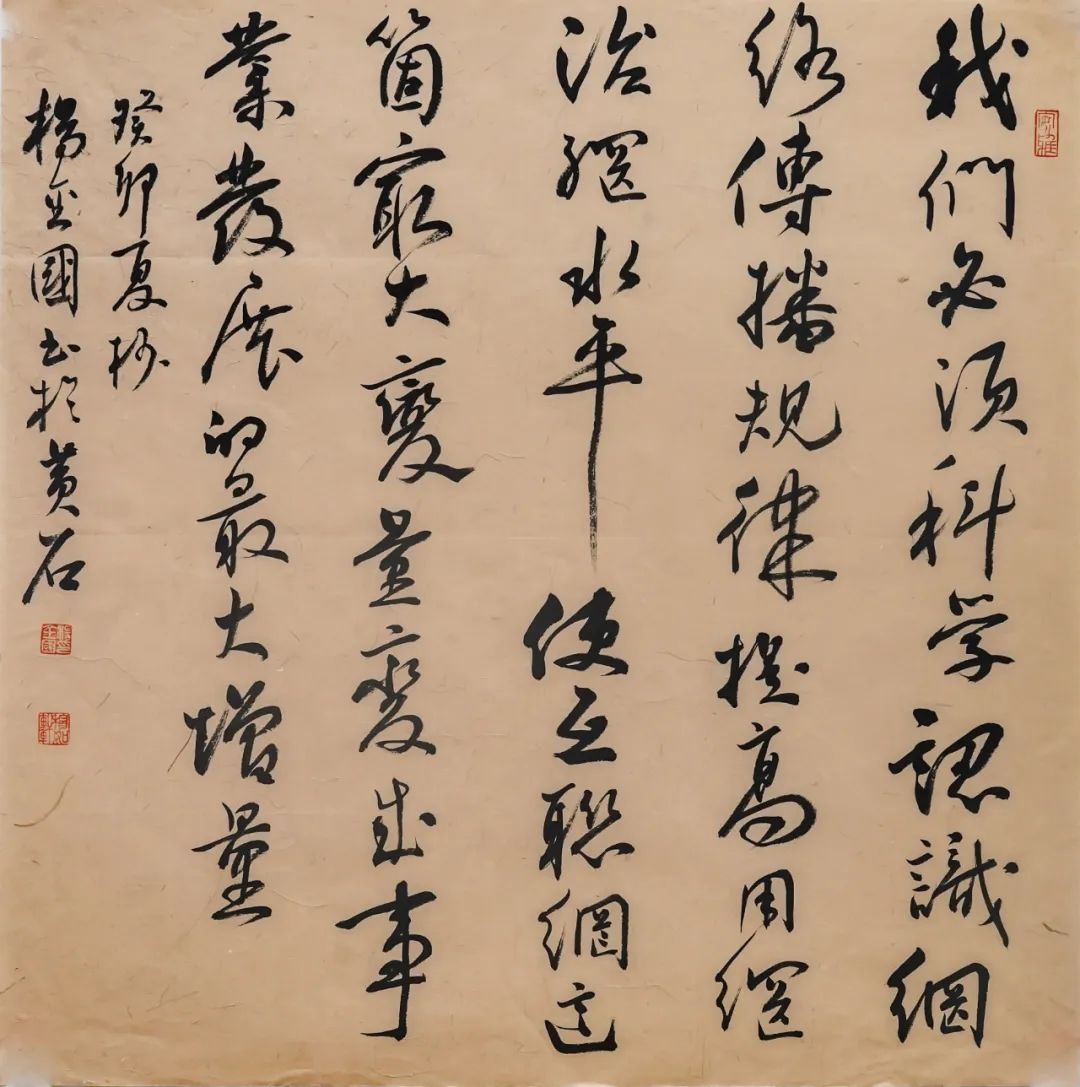 我們必須科学認識網
絡傳播規律提高用網
治網水平使互聯網這
箇最大變量變成事
業發展的最大增量
癸卯夏抄
楊金國書於黄石